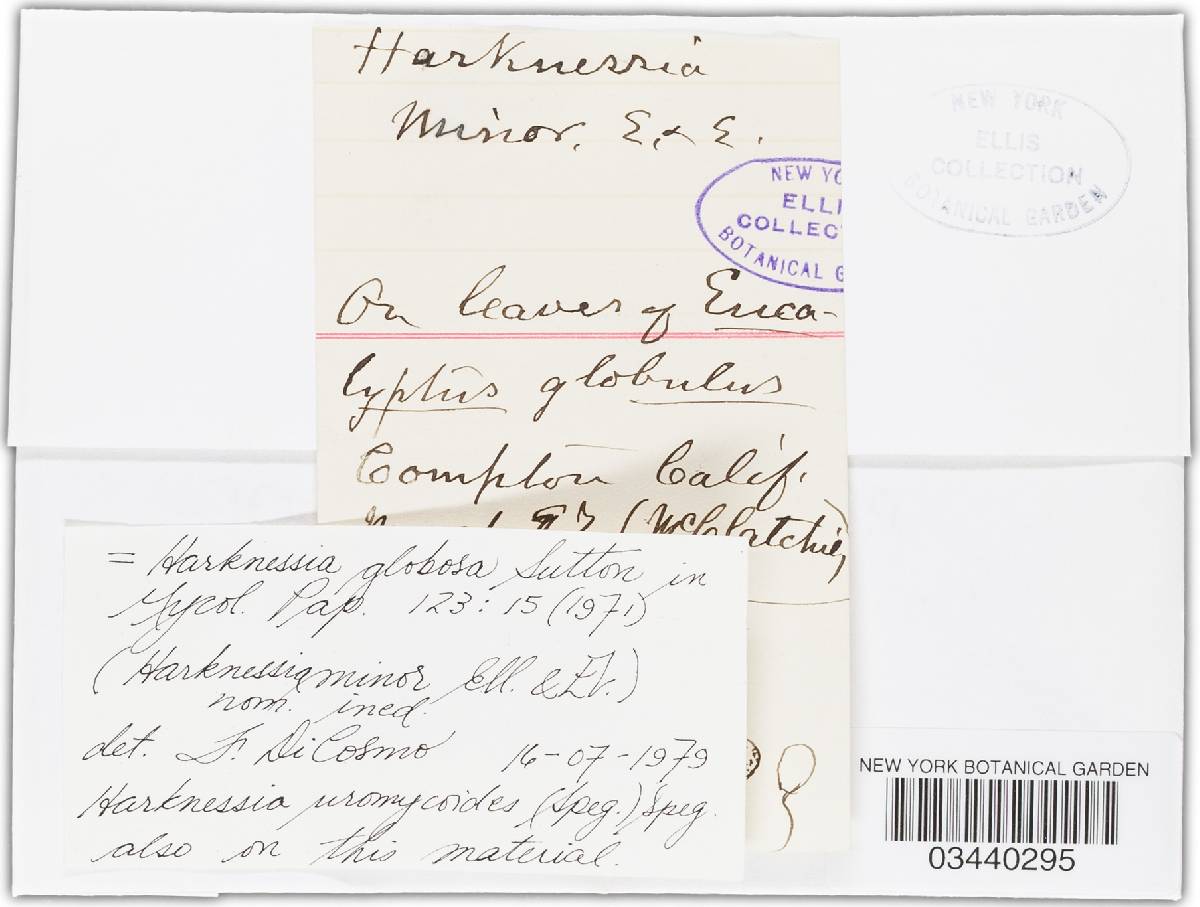 Harknessia
Minor, E. & E.
NEW YORK
ELLIS
COLLECTION
BOTANICAL GARDEN
NEW YO
ELLI
COLLEC
BOTANICAL G
On leaves of Euca-
lyptus globulus
Compton Calif.
(McClatchie)
= Harknessia globosa Sutton in
Mycol. Pap. 123: 15 (1971)
(Harknessia minor Ell. & Ev.)
nom. ined.
det. F. DiCosmo 16-07-1979
Harknessia uromycoides (Speg.) Speg.
also on this material.
NEW YORK BOTANICAL GARDEN
03440295